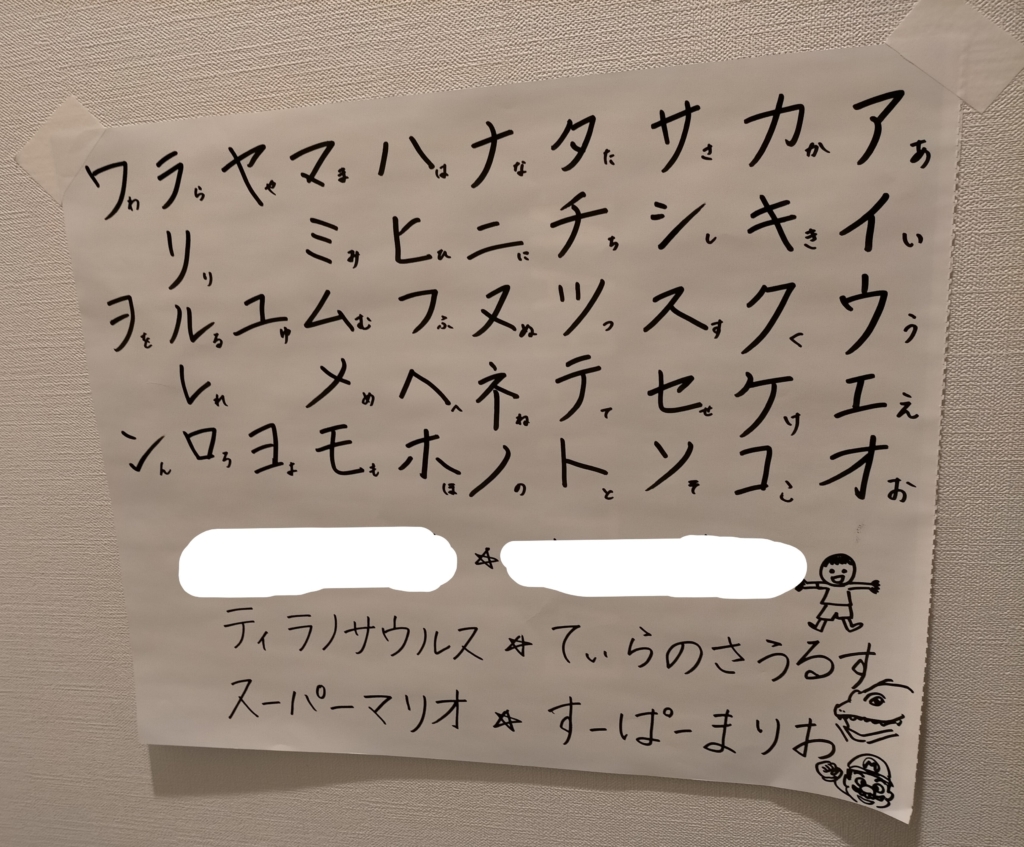 アあ カか サさ タた ナな ハは マま ヤや ラら ワわ
イい キき シし チち ニに ヒひ ミみ リり
ウう クく スす ツつ ヌぬ フふ ムむ ユゆ ルる ヲを
エえ ケけ セせ テて ネね ヘへ メめ レれ
オお コこ ソそ トと ノの ホほ モも ヨよ ロろ ンん
ティラノサウルス☆てぃらのさうるす
スーパーマリオ☆すーぱーまりお